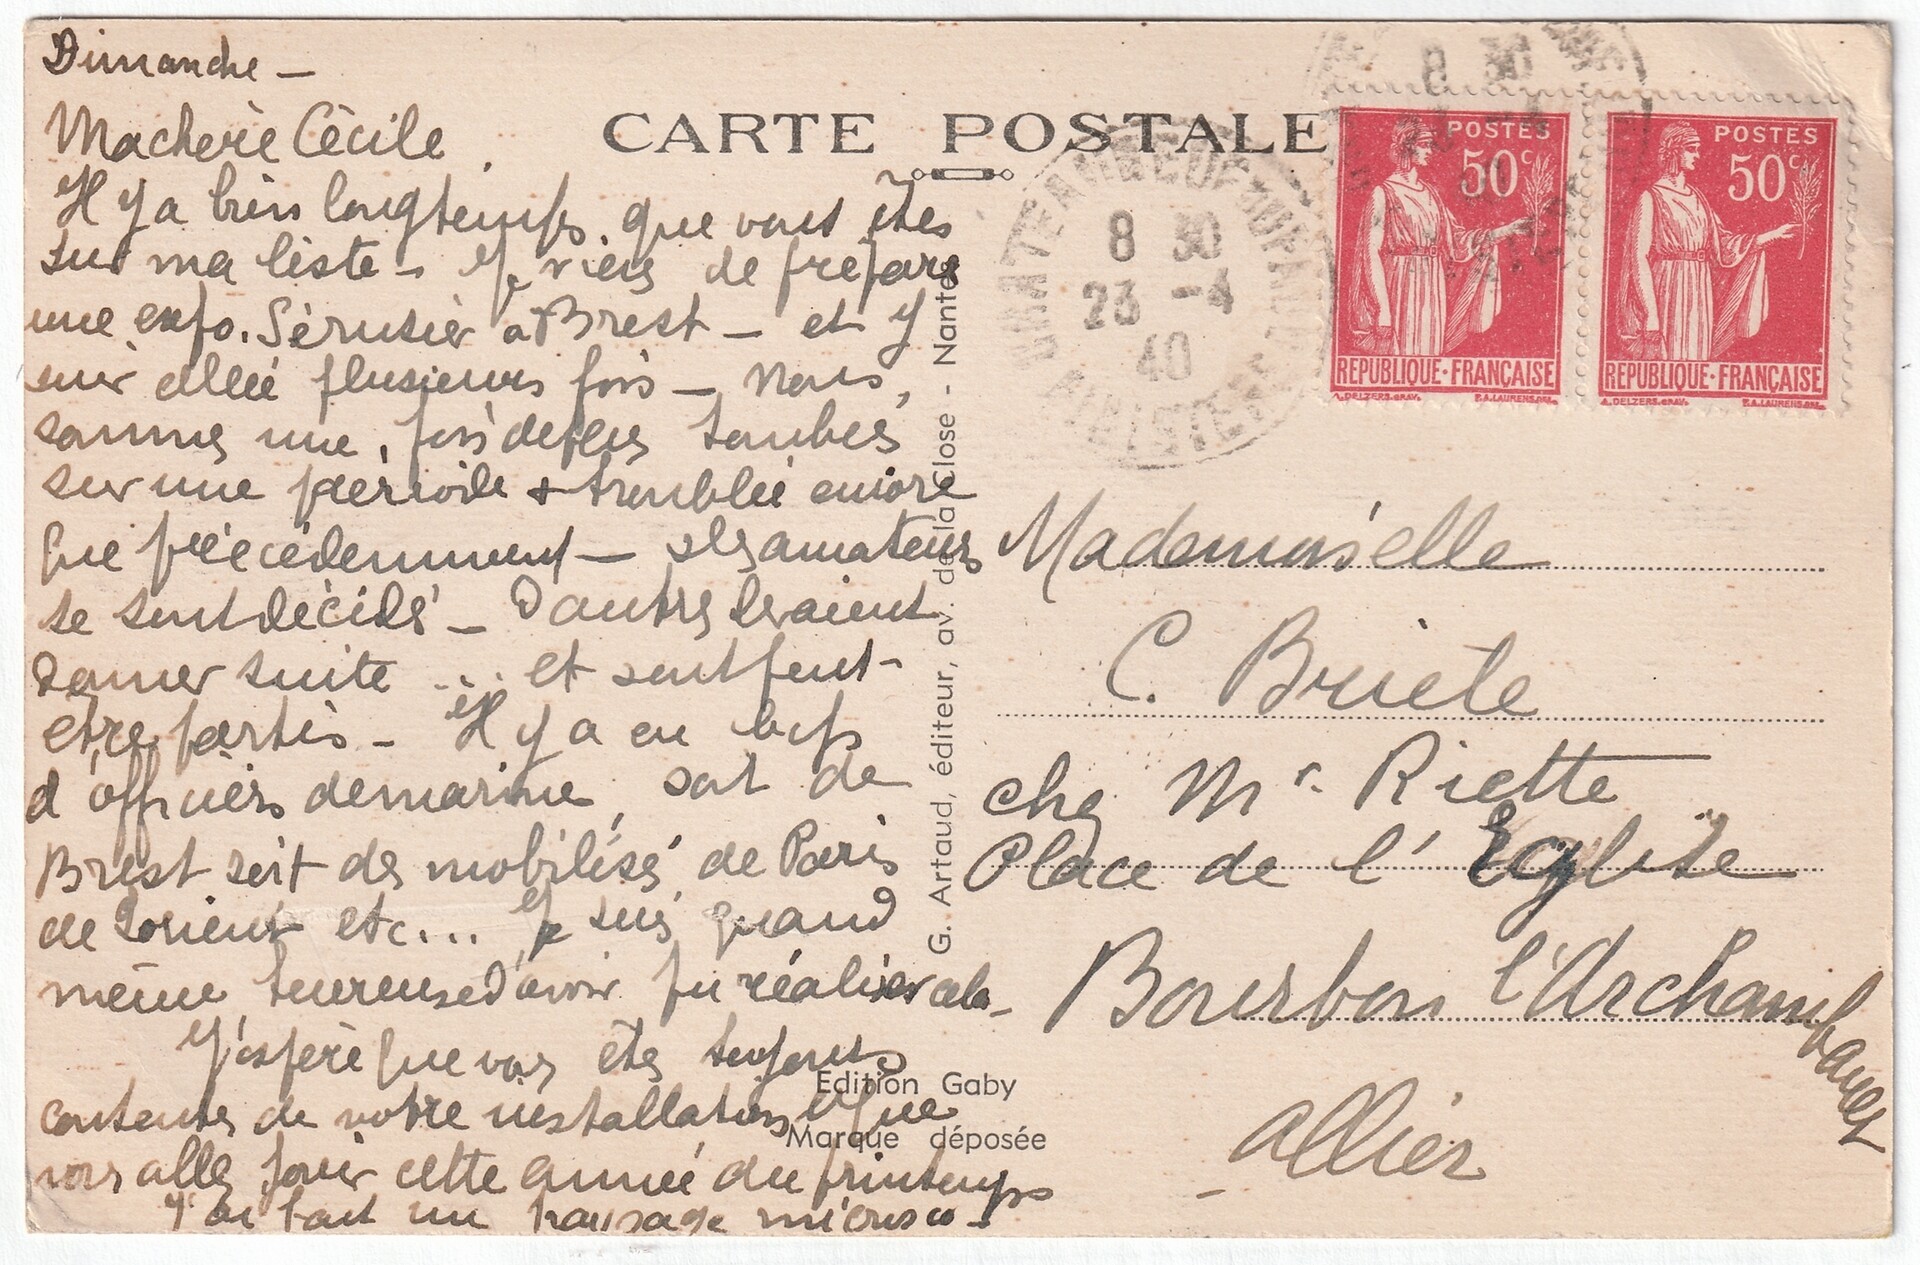 Dimanche –
Ma chère Cécile.
Il y a bien longtemps que vous êtes
sur ma liste – Je viens de préparer
une expo. Sérusier à Brest – et y
suis allée plusieurs fois – Nous
sommes une fois de plus tombés
sur une période + troublée encore
que précédemment – des amateurs
se sont décidés – D'autres devaient
donner suite ... et sont peut-
être partis – Il y a eu
d'officiers de marine, soit de
Brest soit des mobilisés de Paris
de Lorient etc... Je suis quand
même heureuse d'avoir pu réaliser cela –
J'espère que vous êtes toujours
contentes de votre installation et que
vous allez jouir cette année du printemps
J'ai fait un paysage
CARTE POSTALE
G. Artaud, éditeur, av. de la Close - Nantes
Edition Gaby
Marque déposée
8 30
23 -4
40
CHATEAUNEUF-DU-FAOU
FINISTERE
POSTES
50c
REPUBLIQUE·FRANÇAISE
A. DELZERS. GRAV. P. A. LAURENS. DEL.
POSTES
50c
REPUBLIQUE·FRANÇAISE
A. DELZERS. GRAV. P. A. LAURENS. DEL.
Mademoiselle
C. Briete
chez Mr. Riette
Place de l'Eglise
Bourbon l'Archambault
Allier